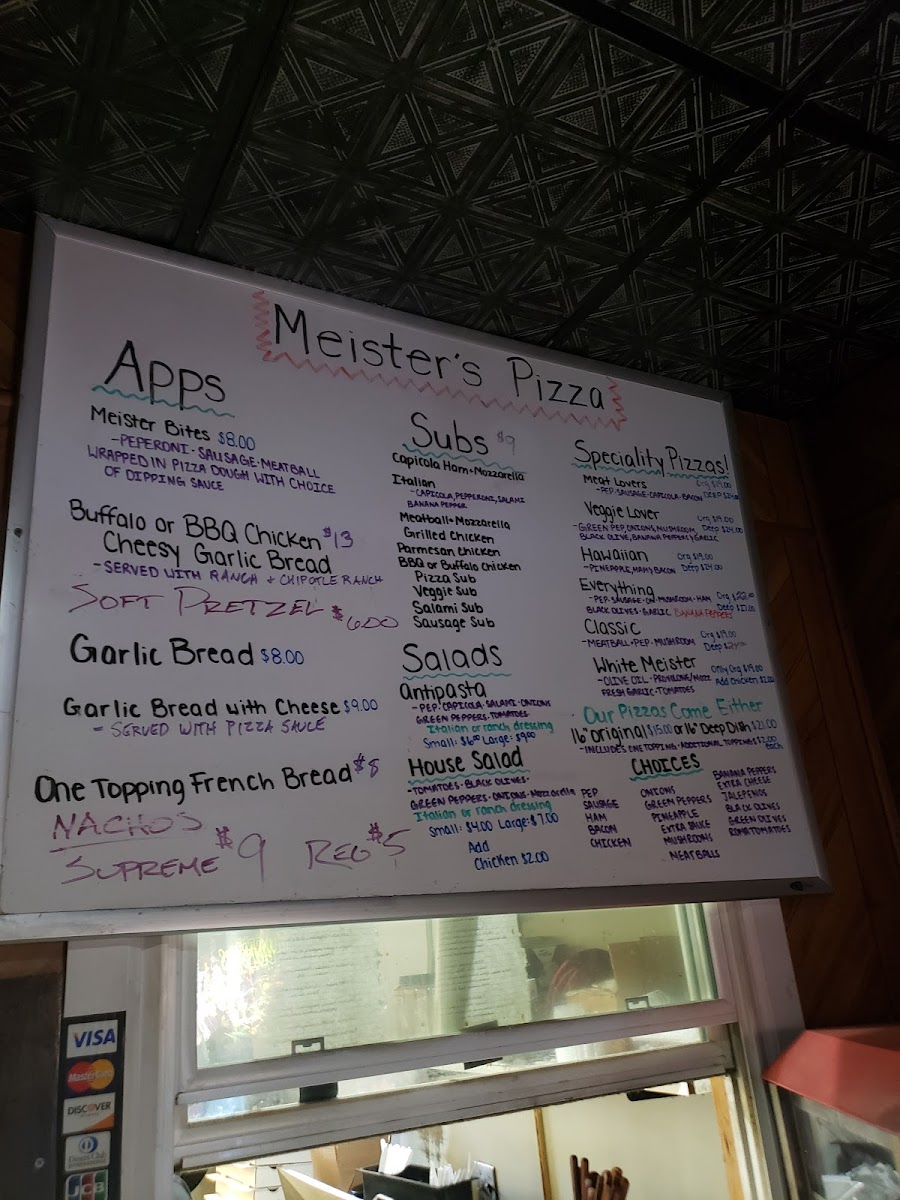 Meister's Pizza
Apps
Meister Bites $8.00
-PEPERONI·SAUSAGE·MEATBALL
WRAPPED IN PIZZA DOUGH WITH CHOICE
OF DIPPING SAUCE
Buffalo or BBQ Chicken $13
Cheesy Garlic Bread
-SERVED WITH RANCH + CHIPOTLE RANCH
SOFT PRETZEL $6.00
Garlic Bread $8.00
Garlic Bread with Cheese $9.00
- SERVED WITH PIZZA SAUCE
One Topping French Bread $8
NACHOS
SUPREME $9 REG $5
Subs $9
Capicola Ham+Mozzarella
Italian
-CAPICOLA, PEPPERONI, SALAMI
BANANA PEPPER
Meatball+Mozzarella
Grilled Chicken
Parmesan Chicken
BBQ or Buffalo Chicken
Pizza Sub
Veggie Sub
Salami Sub
Sausage Sub
Salads
Antipasta
-PEP·CAPICOLA·SALAMI·ONIONS
GREEN PEPPERS·TOMATOES
Italian or ranch dressing
Small: $6.00 Large: $9.00
House Salad
-TOMATOES·BLACK OLIVES·
GREEN PEPPERS·ONIONS·Mozzarella
Italian or ranch dressing
Small: $4.00 Large: $7.00
Add
Chicken $2.00
Speciality Pizzas!
Meat Lovers Org $19.00
-PEP·SAUSAGE·CAPICOLA·BACON Deep $24.00
Veggie Lover Org $19.00
-GREEN PEP, ONIONS, MUSHROOM Deep $24.00
BLACK OLIVE, BANANA PEPPERS, GARLIC
Hawaiian Org $19.00
-PINEAPPLE, HAM, BACON Deep $24.00
Everything Org $22.00
-PEP·SAUSAGE·ON·MUSHROOM·HAM Deep
BLACK OLIVES·GARLIC BANANA PEPPERS
Classic Org $19.00
-MEATBALL·PEP·MUSHROOM Deep
White Meister Only Org $19.00
-OLIVE OIL·PROVOLONE/MOZZ Add Chicken $2.00
FRESH GARLIC·TOMATOES
Our Pizzas Come Either
16" original $15.00 or 16" Deep Dish $21.00
-INCLUDES ONE TOPPING·ADDITIONAL TOPPINGS $2.00 each
CHOICES
PEP
SAUSAGE
HAM
BACON
CHICKEN
ONIONS
GREEN PEPPERS
PINEAPPLE
EXTRA SAUCE
MUSHROOMS
MEATBALLS
BANANA PEPPERS
EXTRA CHEESE
JALEPENOS
BLACK OLIVES
GREEN OLIVES
ROMA TOMATOES
VISA
MasterCard
DISCOVER
Diners Club
JCB